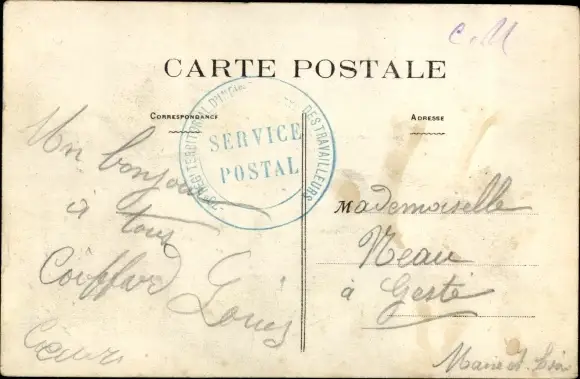 C. M
CARTE POSTALE
CORRESPONDANCE
ADRESSE
TERRITORIAL D'IN DES TRAVAILLEURS
SERVICE
POSTAL
Un bonjour
à tous
Coiffard Louis
Mademoiselle
Neau
à Gesté
Maine et Loire